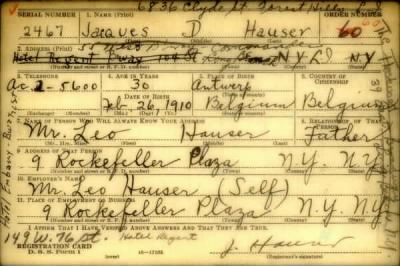 6836 Clyde St. Forest Hills
SERIAL NUMBER 1. NAME (Print) ORDER NUMBER
2467 Jacques D Hauser 60
2. ADDRESS (Print)
Hotel Regent N.Y. N.Y. NY
3. TELEPHONE 4. AGE IN YEARS 5. PLACE OF BIRTH 6. COUNTRY OF CITIZENSHIP
Ac. 2-5600 30 Antwerp
DATE OF BIRTH
Feb. 26, 1910 Belgium Belgium
7. NAME OF PERSON WHO WILL ALWAYS KNOW YOUR ADDRESS 8. RELATIONSHIP OF THAT PERSON
Mr. Leo Hauser Father
9. ADDRESS OF THAT PERSON
9 Rockefeller Plaza N.Y. N.Y.
10. EMPLOYER'S NAME
Mr. Leo Hauser (Self)
11. PLACE OF EMPLOYMENT OR BUSINESS
9 Rockefeller Plaza N.Y. N.Y.
I AFFIRM THAT I HAVE VERIFIED ABOVE ANSWERS AND THAT THEY ARE TRUE.
149 W. 76 St. Hotel Regent
REGISTRATION CARD J. Hauser
D. S. S. Form 1